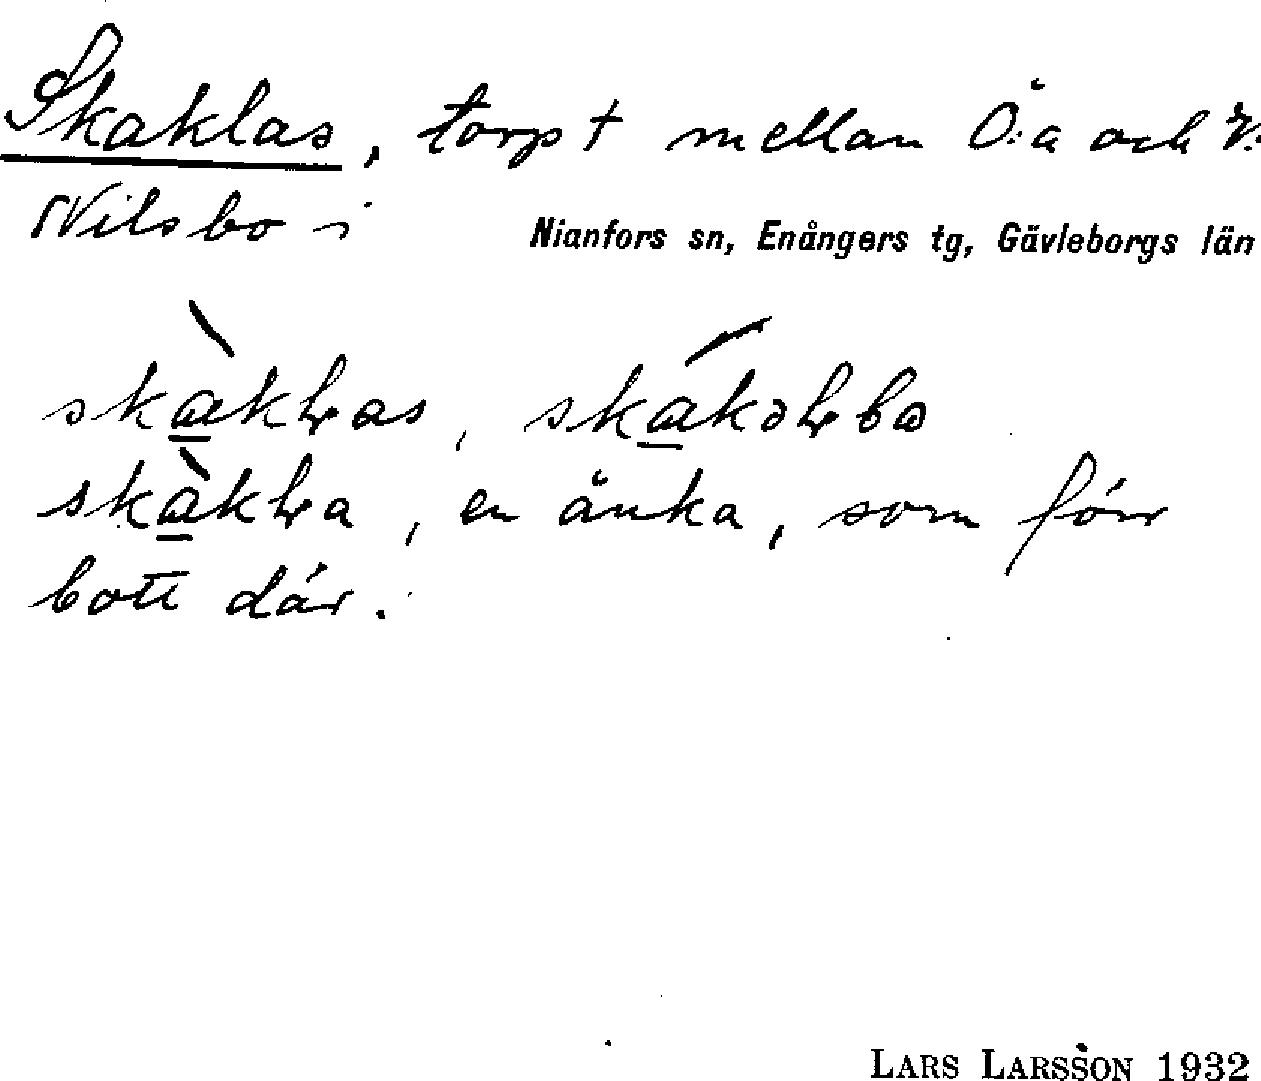 Skaklas, torp † mellan Ö:a och V:
Nilsbo i Nianfors sn, Enångers tg, Gävleborgs län
skàkɫas, skákəɫbo
skàkɫa, en änka, som förr
bott där.
LARS LARSSON 1932